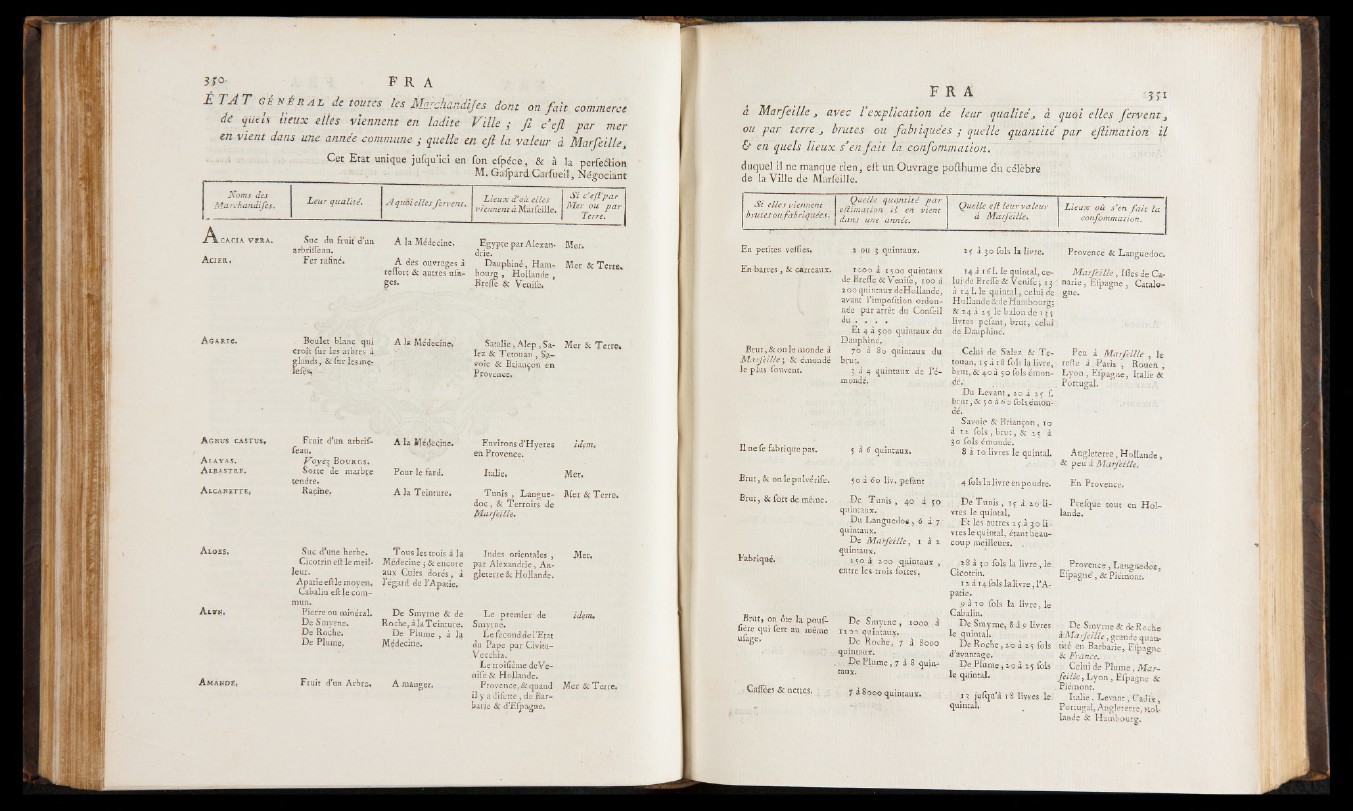 350 F R A
ÉTAT GÉNÉRAL de toutes les Marchandiſes dont on fait commerce
de quels lieux elles viennent en ladite Ville ; ſi c'eſt par mer
en vient dans une année commune ; quelle en eſt la valeur à Marſeille,
Cet Etat unique juſqu'ici en ſon eſpéce, & à la perfection
M. Gaſpard Carfueil, Négociant
Noms des
Marchandiſes.
Leur qualité.
A quoi elles ſervent.
Lieux d'où elles
viennent à Marſeille.
Si c'eſt par
Mer ou par
Terre.
ACACIA VERA.
Suc du fruit d'un
arbriſſeau.
A la Médecine.
Egypte par Alexan-
drie.
Mer.
ACIER.
Fer rafiné.
A des ouvrages à
reſſort & autres uſa-
ges.
Dauphiné, Ham-
bourg, Hollande,
Breſſe & Veniſe.
Mer & Terre.
AGARIC.
Boulet blanc qui
croît ſur les arbres à
glands, & ſur les me-
leſes.
A la Médecine.
Satalie, Alep, Sa-
lez & Tetouan, Sa-
voie & Briançon en
Provence.
Mer & Terre.
AGNUS CASTUS.
Fruit d'un arbriſ-
ſeau.
A la Médecine.
Environs d'Hyeres
en Provence.
idem.
ALAYAS.
Voyez BOURGS.
ALBASTRE.
Sorte de marbre
tendre.
Pour le fard.
Italie.
Mer.
ALCANETTE.
Racine.
A la Teinture.
Tunis, Langue-
doc, & Terroirs de
Marſeille.
Mer & Terre.
ALOES.
Suc d'une herbe.
Cicotrin eſt le meil-
leur.
Apatie eſt le moyen.
Cabalin eſt le com-
mun.
Tous les trois à la
Médecine ; & encore
aux Cuirs dorés, à
l'égard de l'Apatie.
Indes orientales,
par Alexandrie, An-
gleterre & Hollande.
Mer.
ALUN.
Pierre ou minéral.
De Smyrne.
De Roche.
De Plume.
De Smyrne & de
Roche, à la Teinture.
De Plume, à la
Médecine.
Le premier de
Smyrne.
Le ſecond de l'Etat
du Pape par Civita-
Vecchia.
Le troiſiéme de Ve-
niſe & Hollande.
idem.
AMANDE.
Fruit d'un Arbre.
A manger.
Provence, & quand
il y a diſette, de Bar-
barie & d'Eſpagne.
Mer & Terre.
F R A 351
à Marſeille, avec l'explication de leur qualité, à quoi elles ſervent,
ou par terre, brutes ou fabriquées ; quelle quantité par eſtimation il
& en quels lieux s'en fait la conſommation.
duquel il ne manque rien, eſt un Ouvrage poſthume du célébre
de la Ville de Marſeille.
Si elles viennent
brutes ou fabriquées.
Quelle quantité par
eſtimation il en vient
dans une année.
Quelle eſt leur valeur
à Marſeille.
Lieux où s'en fait la
conſommation.
En petites veſſies.
2 ou 3 quintaux.
25 à 30 ſols la livre.
Provence & Languedoc.
En barres, & carreaux.
1000 à 1500 quintaux
de Breſſe & Veniſe, 100 à
200 quintaux de Hollande,
avant l'impoſition ordon-
née par arrêt du Conſeil
du . . . .
Et 4 à 500 quintaux du
Dauphiné.
14 à 16 l. le quintal, ce-
lui de Breſſe & Veniſe ; 13
à 14 l. le quintal, celui de
Hollande & de Hambourg ;
& 24 à 25 le balon de 135
livres peſant, brut, celui
de Dauphiné.
Marſeille, Iſles de Ca-
narie, Eſpagne, Catalo-
gne.
Brut, & on le monde à
Marſeille ; & émondé
le plus ſouvent.
70 à 80 quintaux du
brut.
3 à 4 quintaux de l'é-
mondé.
Celui de Salez & Te-
touan, 15 à 18 ſols la livre,
brut, & 40 à 50 ſols émon-
dé.
Du Levant, 20 à 25 ſ.
brut, & 50 à 60 ſols émon-
dé.
Savoie & Briançon, 10
à 12 ſols, brut, & 25 à
30 ſols émondé.
Peu à Marſeille, le
reſte à Paris, Rouen,
Lyon, Eſpagne, Italie &
Portugal.
Il ne ſe fabrique pas.
5 à 6 quintaux.
8 à 10 livres le quintal.
Angleterre, Hollande,
& peu à Marſeille.
Brut, & on le pulvériſe.
50 à 60 liv. peſant
4 ſols la livre en poudre.
En Provence.
Brut, & ſort de même.
De Tunis, 40 à 50
quintaux.
Du Languedoc, 6 à 7
quintaux.
De Marſeille, 1 à 2
quintaux.
De Tunis, 15 à 20 li-
vres le quintal,
Et les autres 25 à 30 li-
vres le quintal, étant beau-
coup meilleurs.
Preſque tout en Hol-
lande.
Fabriqué.
150 à 200 quintaux,
entre les trois ſortes.
28 à 50 ſols la livre, le
Cicotrin.
12 à 14 ſols la livre, l'A-
patie.
9 à 10 ſols la livre, le
Cabalin.
Provence, Languedoc,
Eſpagne, & Piémont.
Brut, on ôte la pouſ-
ſiére qui ſert au même
uſage.
De Smyrne, 1000 à
1100 quintaux.
De Roche, 7 à 8000
quintaux.
De Plume, 7 à 8 quin-
taux.
De Smyrne, 8 à 9 livres
le quintal.
De Roche, 20 à 25 ſols
d'avantage.
De Plume, 20 à 25 ſols
le quintal.
De Smyrne & de Roche
à Marſeille, grande quan-
tité en Barbarie, Eſpagne
& France.
Celui de Plume, Mar-
ſeille, Lyon, Eſpagne &
Piémont.
Caſſées & nettes.
7 à 8000 quintaux.
13 juſqu'à 18 livres le
quintal.
Italie, Levant, Cadix,
Portugal, Angleterre, Hol-
lande & Hambourg.